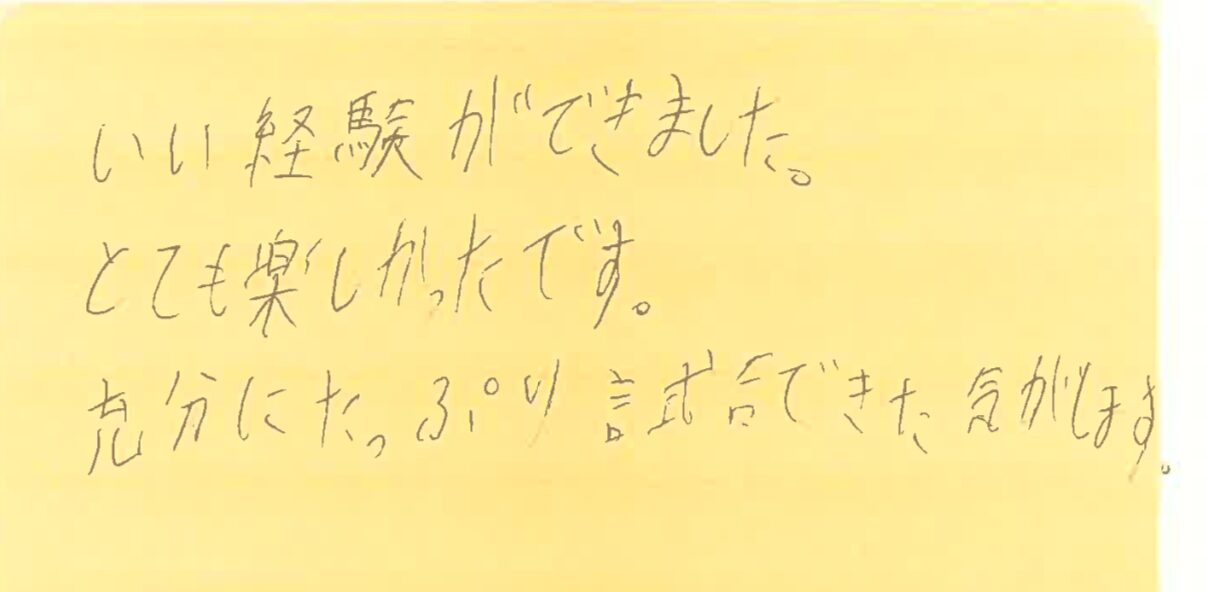 いい経験ができました。
とても楽しかったです。
充分にたっぷり試合できた気がします。